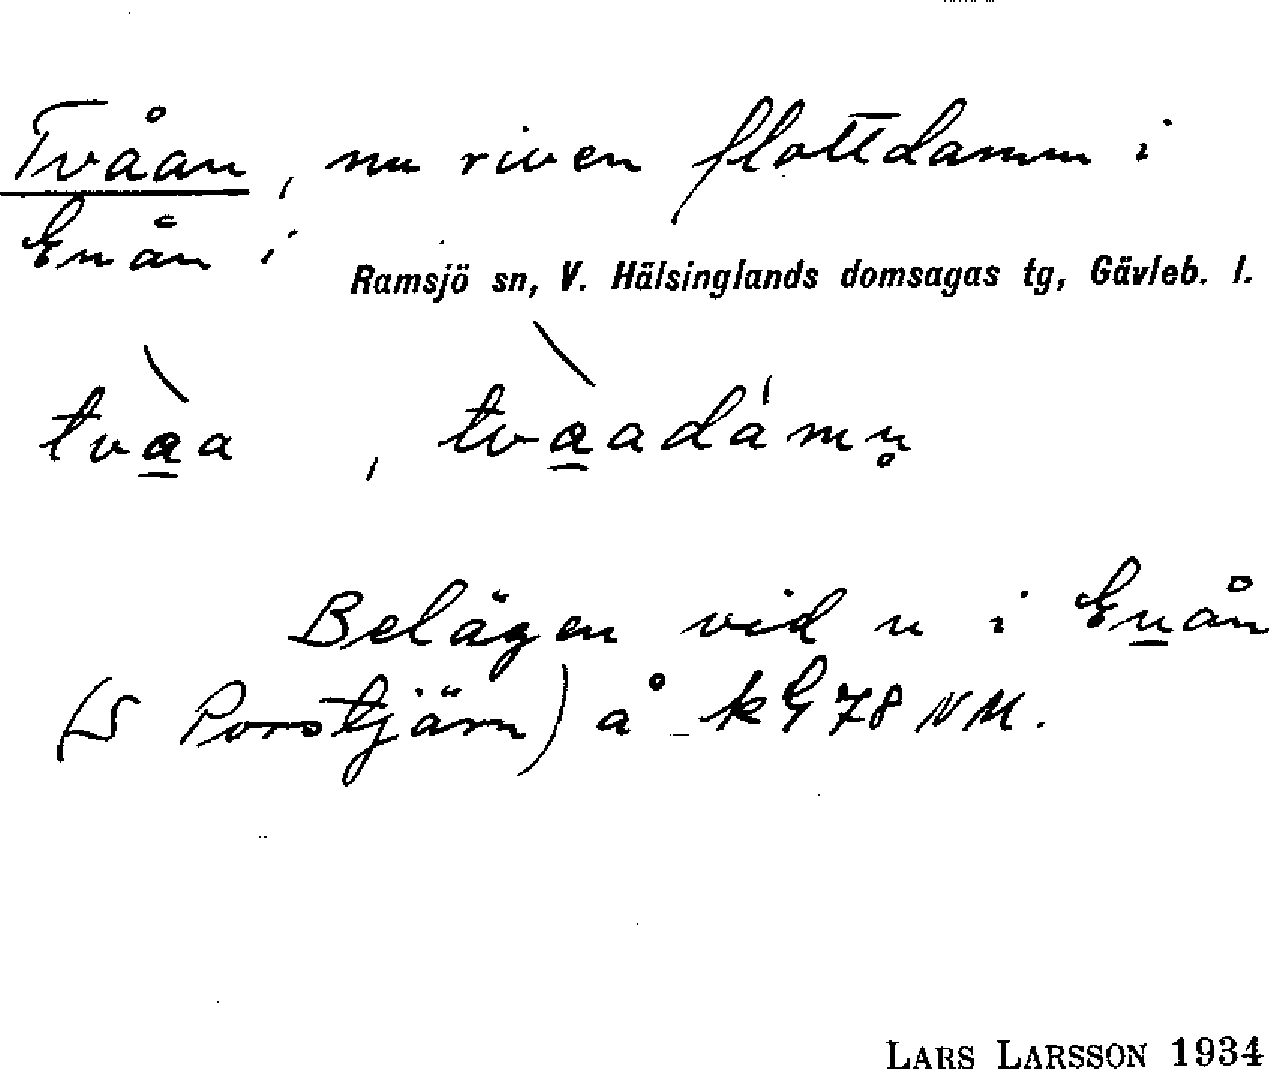 Tvåan, nu riven flottdamm i
Enån i
Ramsjö sn, V. Hälsinglands domsagas tg, Gävleb. l.
tvàa, tvàadámn̥
Belägen vid n i Enån
(S Porstjärn) å kG 78 NM.
LARS LARSSON 1934